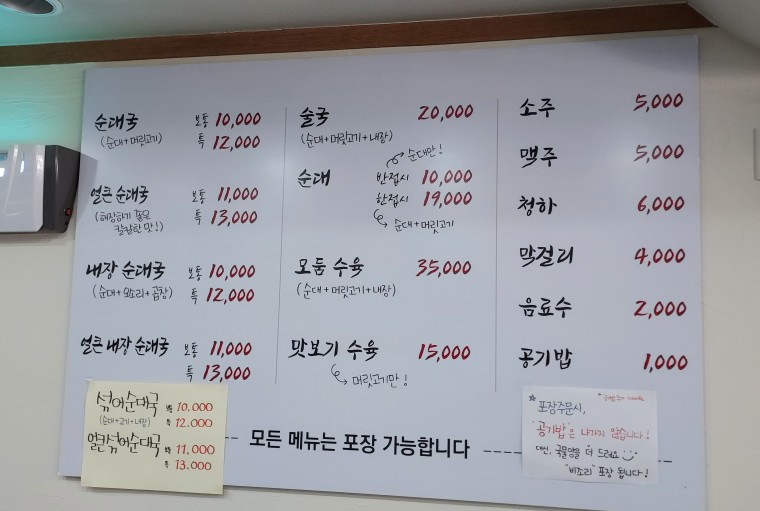 순대국 보통 10,000
(순대+머릿고기) 특 12,000
얼큰 순대국 보통 11,000
(해장하기 좋은 특 13,000
칼칼한 맛!)
내장 순대국 보통 10,000
(순대+오소리+곱창) 특 12,000
얼큰 내장 순대국 보통 11,000
특 13,000
섞어순대국 보통 10,000
(순대+고기+내장) 특 12,000
얼큰섞어순대국 보통 11,000
특 13,000
술국 20,000
(순대+머릿고기+내장)
순대만!
순대 반접시 10,000
한접시 19,000
순대+머릿고기
모둠 수육 35,000
(순대+머릿고기+내장)
맛보기 수육 15,000
머릿고기만!
소주 5,000
맥주 5,000
청하 6,000
막걸리 4,000
음료수 2,000
공기밥 1,000
모든 메뉴는 포장 가능합니다
포장주문시,
"공기밥"은 나가지 않습니다!
대신, 국물양을 더 드려요
"비조리" 포장 됩니다!